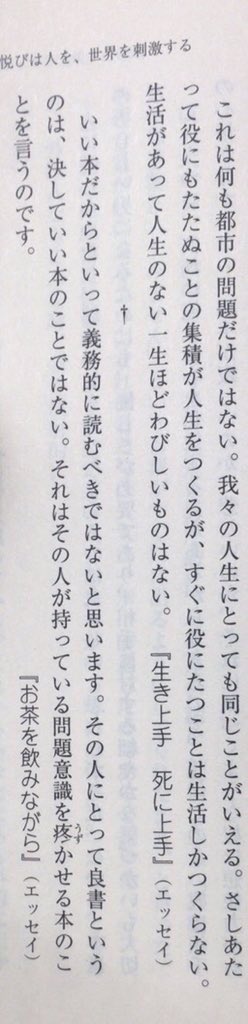 悦びは人を、世界を刺激する
これは何も都市の問題だけではない。我々の人生にとっても同じことがいえる。さしあた
って役にもたたぬことの集積が人生をつくるが、すぐに役にたつことは生活しかつくらない。
生活があって人生のない一生ほどわびしいものはない。『生き上手 死に上手』（エッセイ）
†
いい本だからといって義務的に読むべきではないと思います。その人にとって良書という
のは、決していい本のことではない。それはその人が持っている問題意識を疼かせる本のこ
うず
とを言うのです。
『お茶を飲みながら』（エッセイ）